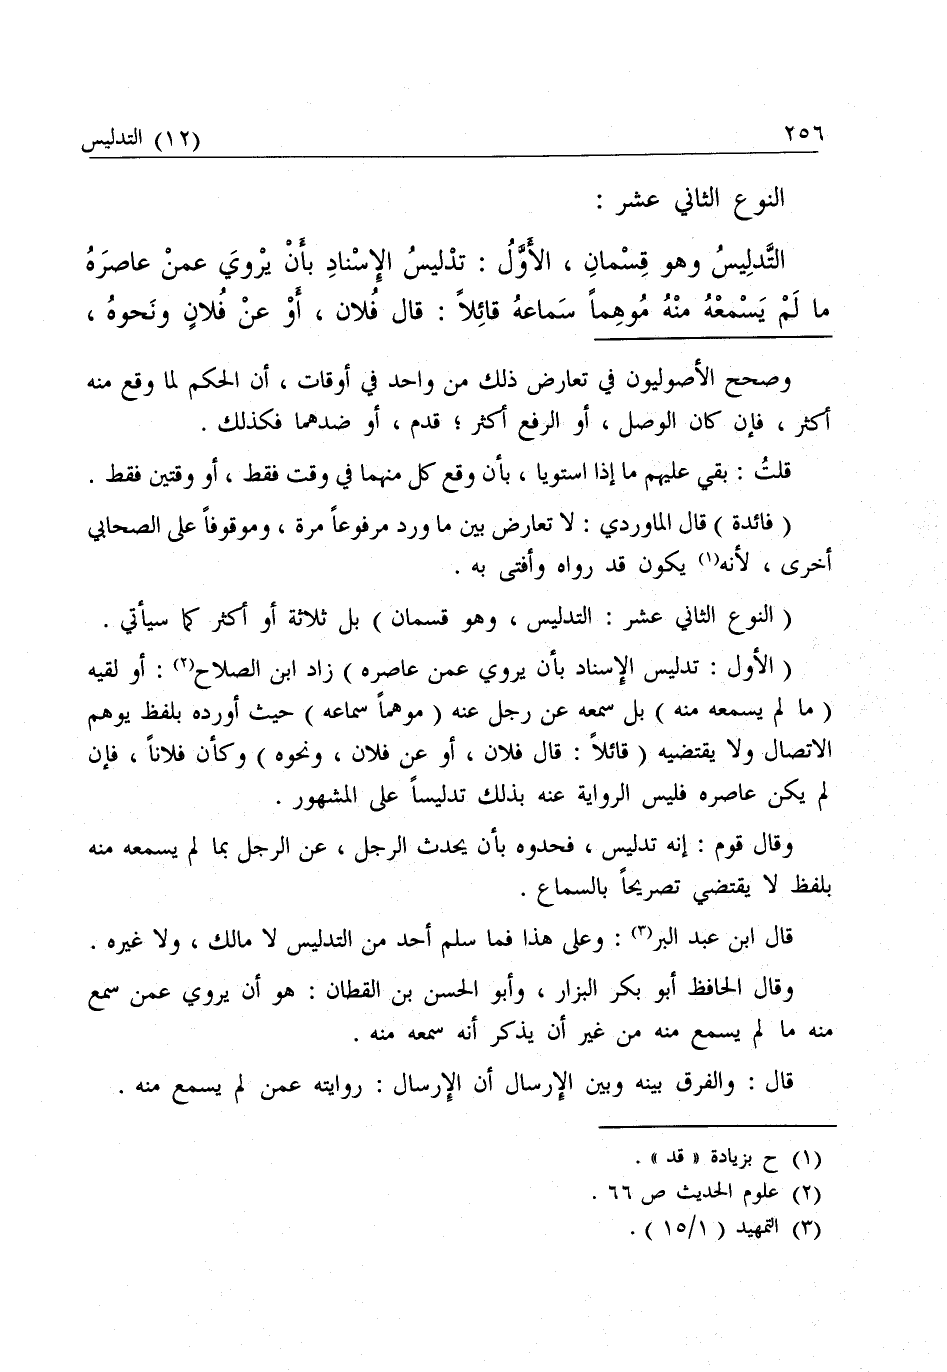 ٢٥٦
(١٢) التدليس
النوع الثاني عشر :
التَّدلِيسُ وهو قِسْمانِ ، الأَوَّلُ : تدْليسُ الإِسْنادِ بأَنْ يرْويَ عمنْ عاصرَهُ
ما لَمْ يَسْمعْهُ منْهُ مُوهِماً سَماعهُ قائِلاً : قال فُلان ، أَوْ عنْ فُلانٍ ونَحوهُ ،
وصحح الأصوليون في تعارض ذلك من واحد في أوقات ، أن الحكم لما وقع منه
أكثر ، فإن كان الوصل ، أو الرفع أكثر ؛ قدم ، أو ضدهما فكذلك .
قلتُ : بقي عليهم ما إذا استويا ، بأن وقع كل منهما في وقت فقط ، أو وقتين فقط .
( فائدة ) قال الماوردي : لا تعارض بين ما ورد مرفوعاً مرة ، وموقوفاً على الصحابي
أخرى ، لأنه(١) يكون قد رواه وأفتى به .
( النوع الثاني عشر : التدليس ، وهو قسمان ) بل ثلاثة أو أكثر كما سيأتي .
( الأول : تدليس الإسناد بأن يروي عمن عاصره ) زاد ابن الصلاح(٢) : أو لقيه
( ما لم يسمعه منه ) بل سمعه عن رجل عنه ( موهماً سماعه ) حيث أورده بلفظ يوهم
الاتصال ولا يقتضيه ( قائلاً : قال فلان ، أو عن فلان ، ونحوه ) وكأن فلاناً ، فإن
لم يكن عاصره فليس الرواية عنه بذلك تدليساً على المشهور .
وقال قوم : إنه تدليس ، فحدوه بأن يحدث الرجل ، عن الرجل بما لم يسمعه منه
بلفظ لا يقتضي تصريحاً بالسماع .
قال ابن عبد البر(٣) : وعلى هذا فما سلم أحد من التدليس لا مالك ، ولا غيره .
وقال الحافظ أبو بكر البزار ، وأبو الحسن بن القطان : هو أن يروي عمن سمع
منه ما لم يسمع منه من غير أن يذكر أنه سمعه منه .
قال : والفرق بينه وبين الإرسال أن الإرسال : روايته عمن لم يسمع منه .
(١) ح بزيادة « قد » .
(٢) علوم الحديث ص ٦٦ .
(٣) التمهيد ( ١٥/١ ) .